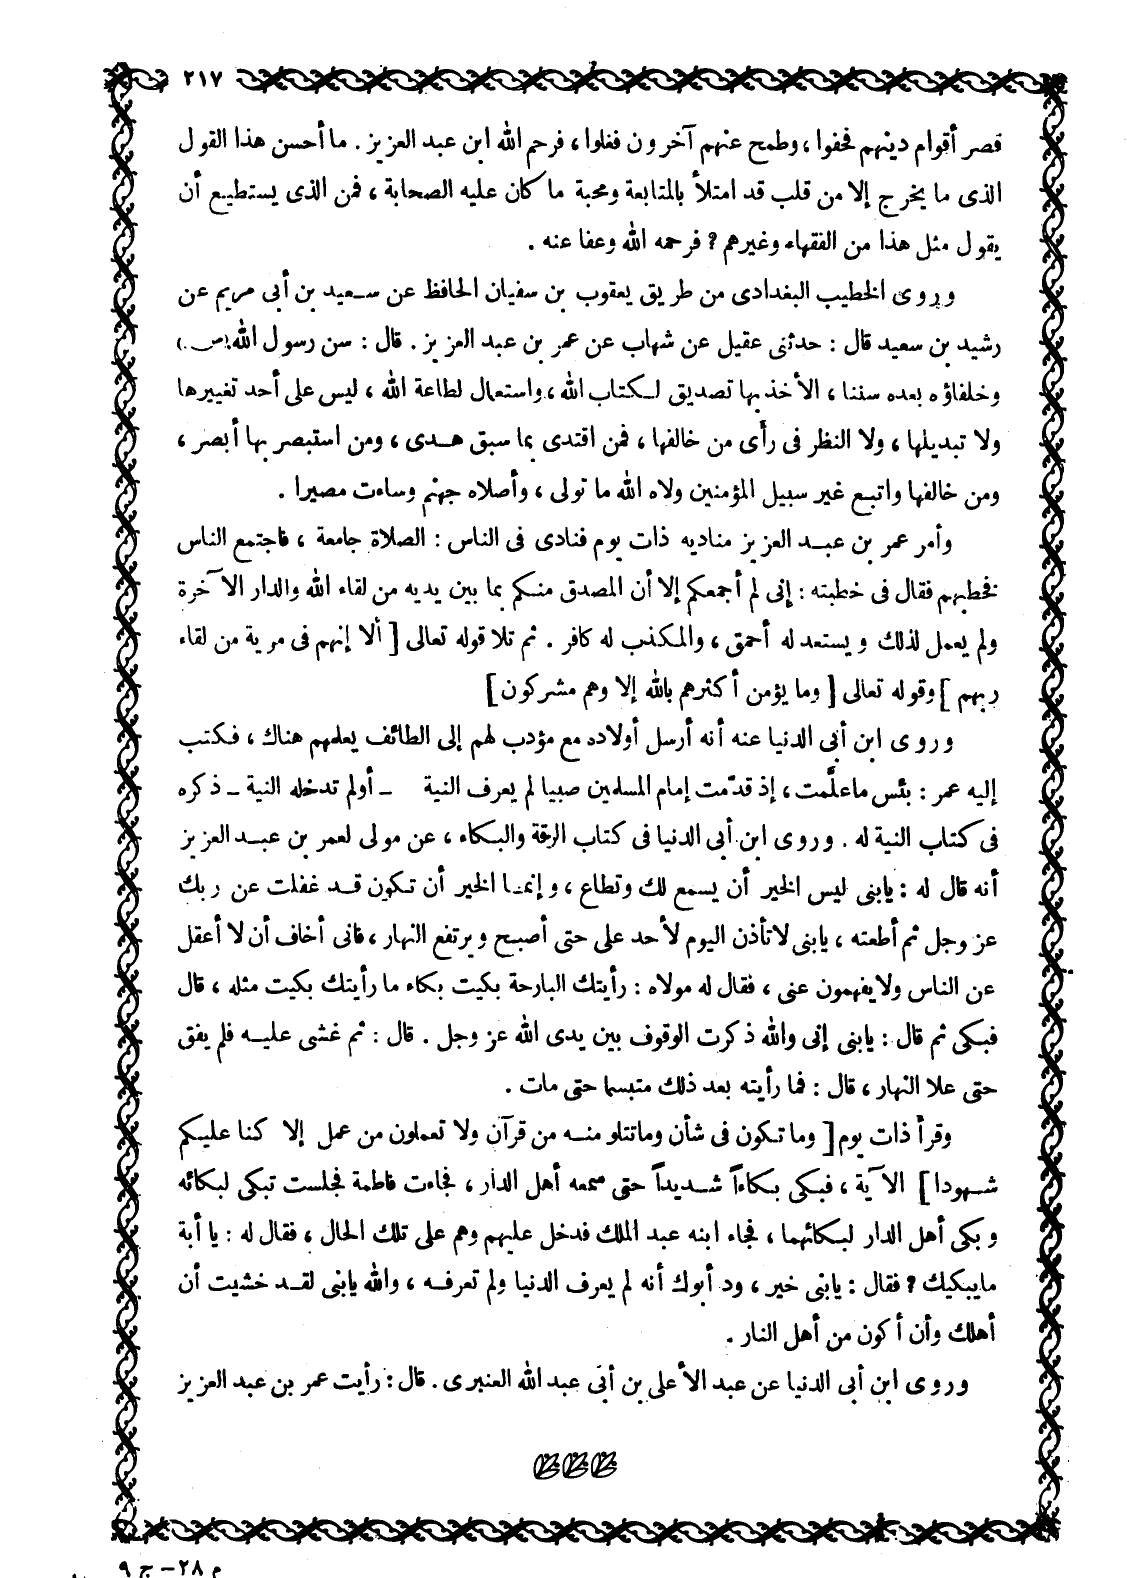 ٢١٧
قصر أقوام دينهم فجفوا ، وطمح عنهم آخرون فغلوا ، فرحم الله ابن عبد العزيز . ما أحسن هذا القول
الذى ما يخرج إلا من قلب قد امتلأ بالمتابعة ومحبة ما كان عليه الصحابة ، فمن الذى يستطيع أن
يقول مثل هذا من الفقهاء وغيرهم ؟ فرحمه الله وعفا عنه .
وروى الخطيب البغدادى من طريق يعقوب بن سفيان الحافظ عن سعيد بن أبى مريم عن
رشيد بن سعيد قال : حدثنى عقيل عن شهاب عن عمر بن عبد العزيز . قال : سن رسول الله (ص)
وخلفاؤه بعده سننا ، الأخذ بها تصديق لكتاب الله ، واستعمال لطاعة الله ، ليس على أحد تغييرها
ولا تبديلها ، ولا النظر فى رأى من خالفها ، فمن اقتدى بما سبق هدى ، ومن استبصر بها أبصر ،
ومن خالفها واتبع غير سبيل المؤمنين ولاه الله ما تولى ، وأصلاه جهنم وساءت مصيرا .
وأمر عمر بن عبد العزيز مناديه ذات يوم فنادى فى الناس : الصلاة جامعة ، فاجتمع الناس
فخطبهم فقال فى خطبته : إنى لم أجمعكم إلا أن المصدق منكم بما بين يديه من لقاء الله والدار الآخرة
ولم يعمل لذلك ويستعد له أحمق ، والمكذب له كافر . ثم تلا قوله تعالى [ ألا إنهم فى مرية من لقاء
ربهم ] وقوله تعالى [ وما يؤمن أكثرهم بالله إلا وهم مشركون ]
وروى ابن أبى الدنيا عنه أنه أرسل أولاده مع مؤدب لهم إلى الطائف يعلمهم هناك ، فكتب
إليه عمر : بئس ما علَّمت ، إذ قدّمت إمام المسلمين صبيا لم يعرف النية – أو لم تدخله النية – ذكره
فى كتاب النية له . وروى ابن أبى الدنيا فى كتاب الرقة والبكاء ، عن مولى لعمر بن عبد العزيز
أنه قال له : يابنى ليس الخير أن يسمع لك وتطاع ، وإنما الخير أن تكون قد غفلت عن ربك
عز وجل ثم أطعته ، يابنى لا تأذن اليوم لأحد على حتى أصبح ويرتفع النهار ، فانى أخاف أن لا أعقل
عن الناس ولا يفهمون عنى ، فقال له مولاه : رأيتك البارحة بكيت بكاء ما رأيتك بكيت مثله ، قال
فبكى ثم قال : يابنى إنى والله ذكرت الوقوف بين يدى الله عز وجل . قال : ثم غشى عليه فلم يفق
حتى علا النهار ، قال : فما رأيته بعد ذلك متبسما حتى مات .
وقرأ ذات يوم [ وما تكون فى شأن وما تتلو منه من قرآن ولا تعملون من عمل إلا كنا عليكم
شهودا ] الآية ، فبكى بكاءاً شديداً حتى سمعه أهل الدار ، فجاءت فاطمة فجلست تبكى لبكائه
وبكى أهل الدار لبكائهما ، فجاء ابنه عبد الملك فدخل عليهم وهم على تلك الحال ، فقال له : يا أبة
ما يبكيك ؟ فقال : يابنى خير ، ود أبوك أنه لم يعرف الدنيا ولم تعرفه ، والله يابنى لقد خشيت أن
أهلك وأن أكون من أهل النار .
وروى ابن أبى الدنيا عن عبد الأعلى بن أبى عبد الله العنبرى . قال : رأيت عمر بن عبد العزيز
م ٢٨ – ج ٩